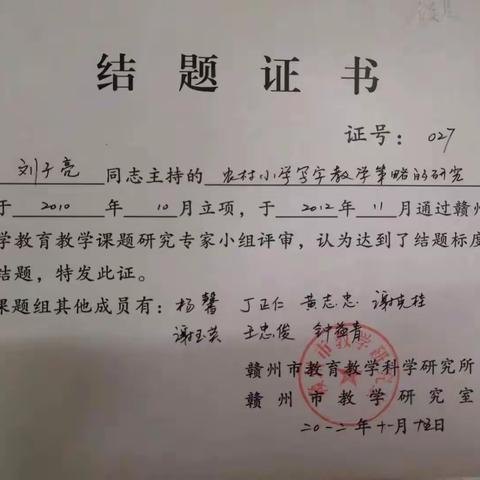 结题证书
证号：027
刘子亮同志主持的农村小学写字教学策略的研究
于2010年10月立项，于2012年11月通过赣州
学教育教学课题研究专家小组评审，认为达到了结题标度
结题，特发此证。
课题组其他成员有：杨馨 丁正仁 黄志忠 谢克桂
谢玉英 王忠俊 钟益青
赣州市教育教学科学研究所
赣州市教学研究室
二〇一二年十一月十五日